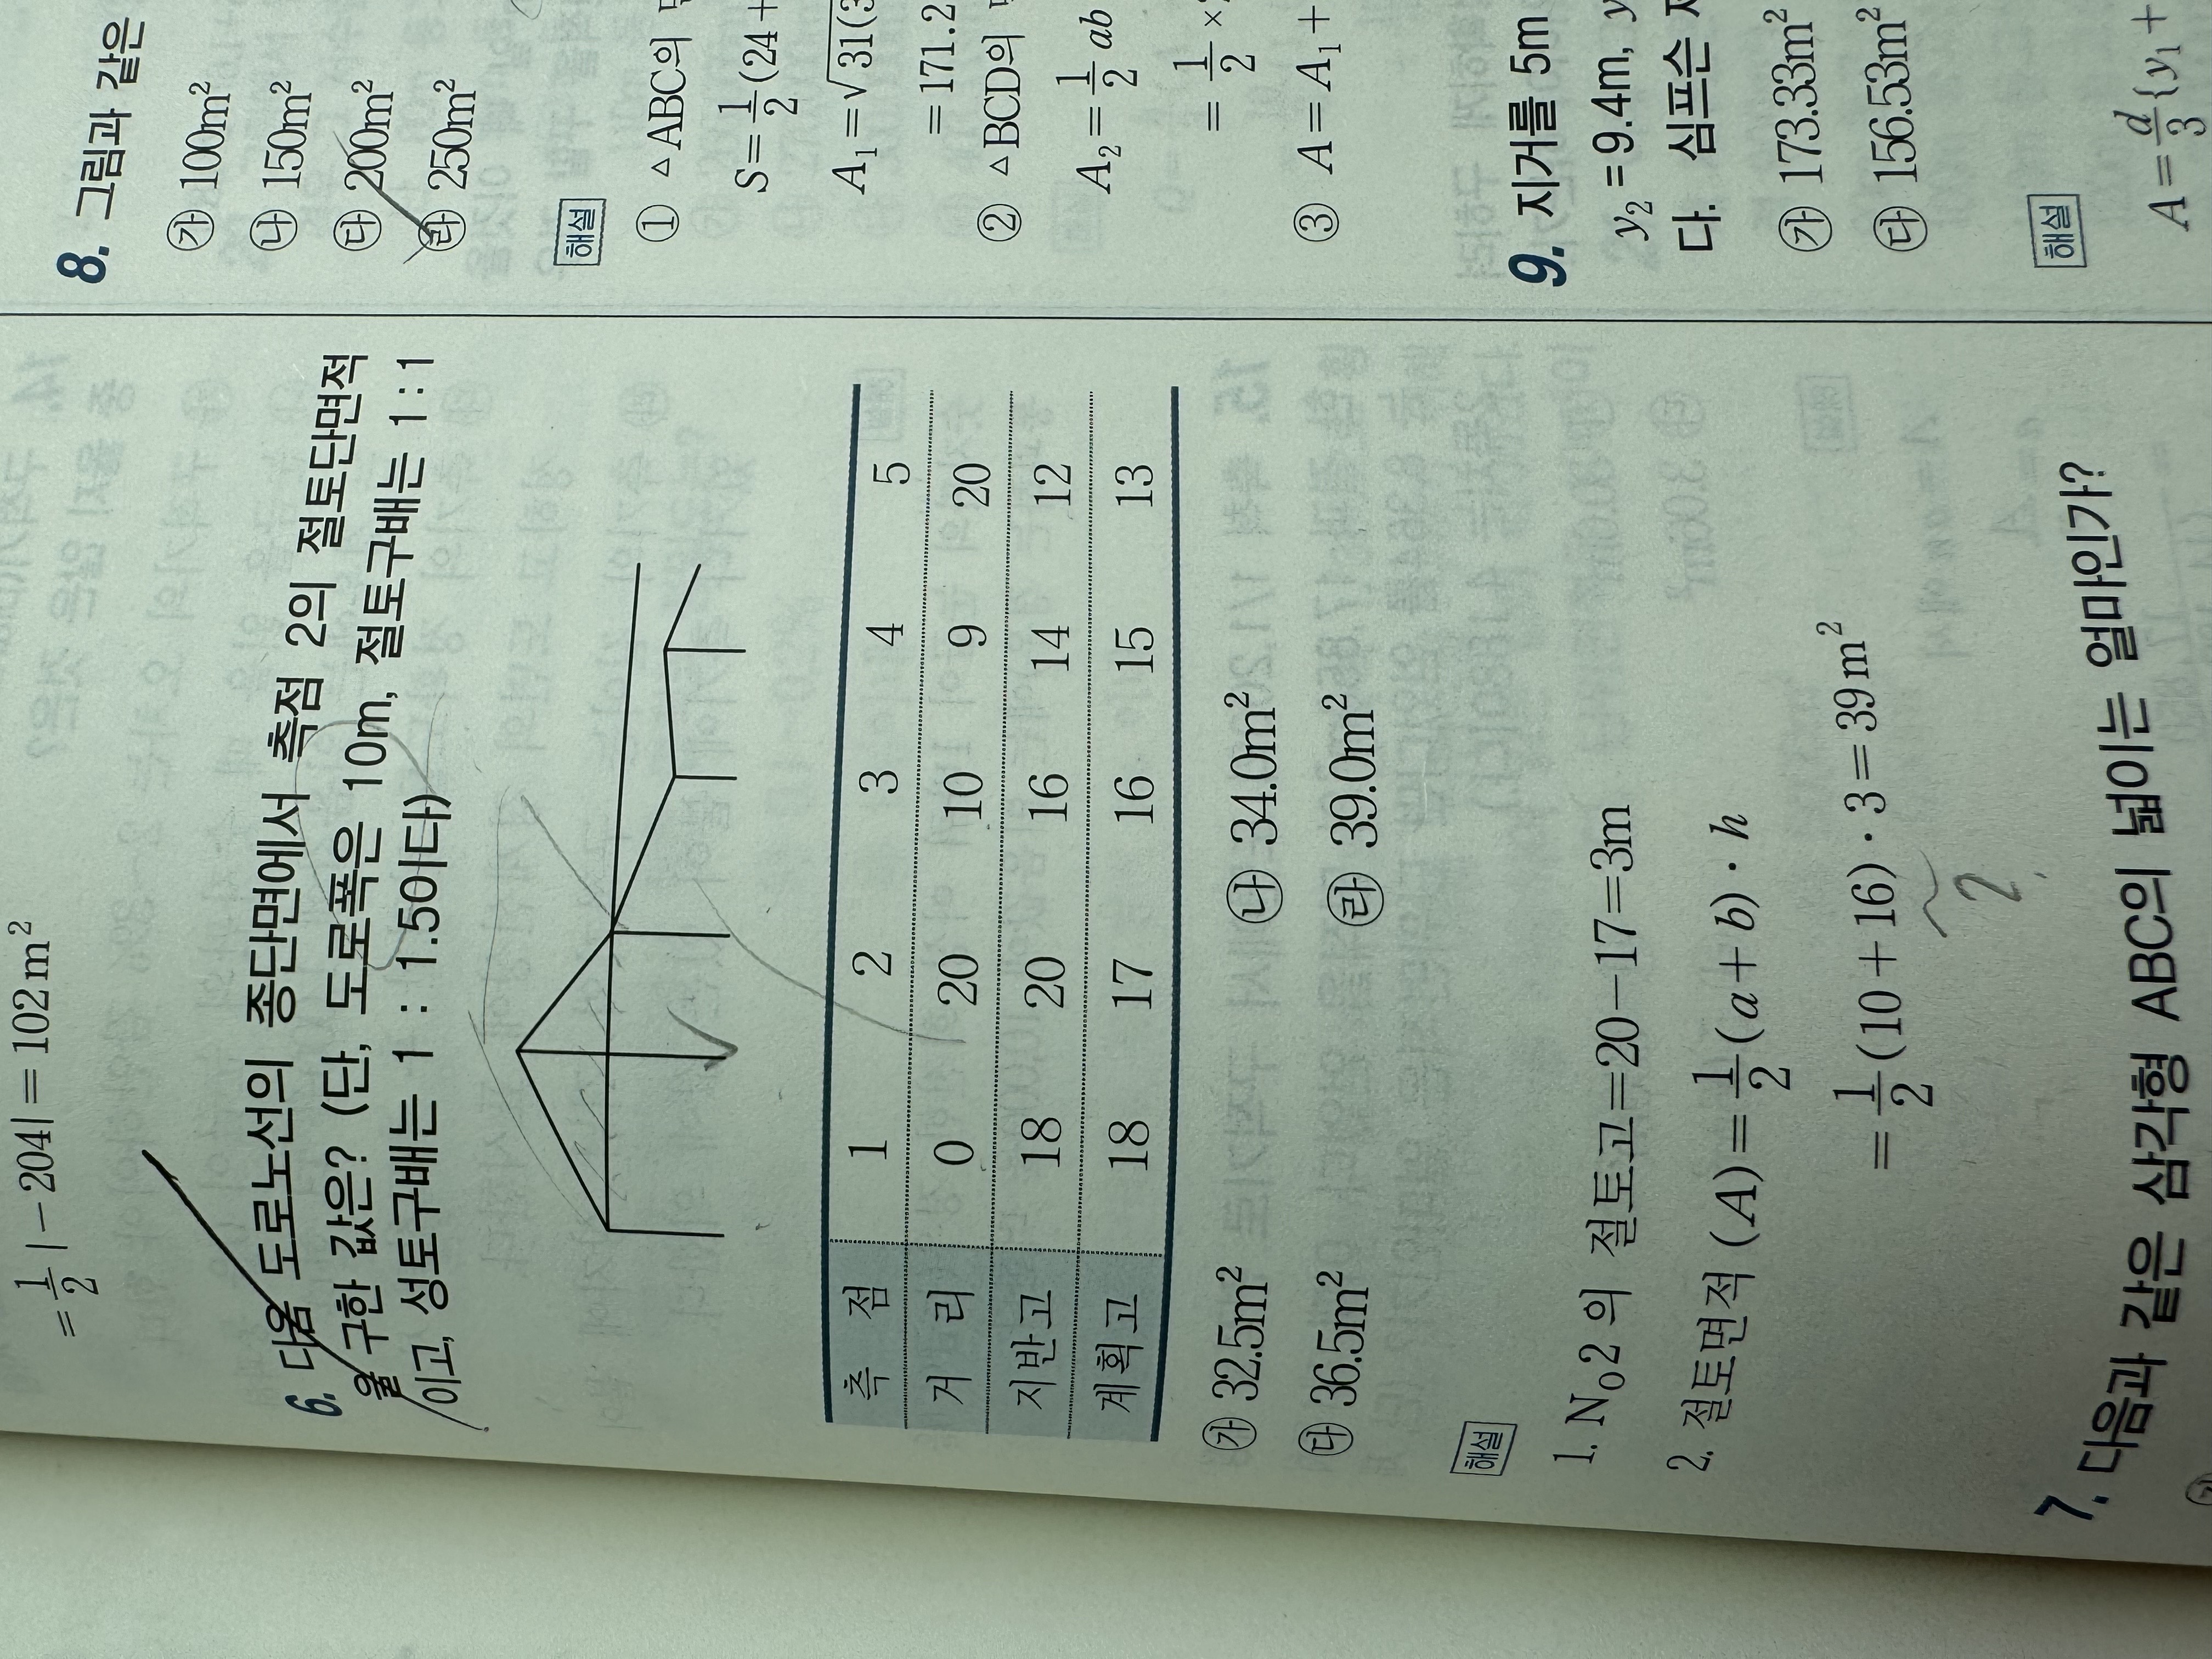 = 1/2 | −204| = 102m²
6. 다음 도로노선의 종단면에서 측점 2의 절토단면적
을 구한 값은? (단, 도로폭은 10m, 절토구배는 1 : 1
이고, 성토구배는 1 : 1.5이다)
측 점 1 2 3 4 5
거 리 0 20 10 9 20
지반고 18 20 16 14 12
계획고 18 17 16 15 13
㉮ 32.5m² ㉯ 34.0m²
㉰ 36.5m² ㉱ 39.0m²
해설
1. N₀2 의 절토고=20−17=3m
2. 절토면적 (A) = 1/2 (a + b) · h
= 1/2 (10 + 16) · 3 = 39m²
?
7. 다음과 같은 삼각형 ABC의 넓이는 얼마인가?
㉮
8. 그림과 같은
㉮ 100m²
㉯ 150m²
㉰ 200m²
㉱ 250m²
해설
① △ABC의
S = 1/2 (24 +
A₁ = √31(3
= 171.2
② △BCD의
A₂ = 1/2 ab
= 1/2 ×
③ A = A₁ +
9. 지거를 5m
y₂ = 9.4m, y
다. 심프슨
㉮ 173.33m²
㉰ 156.53m²
해설
A = d/3 {y₁ +